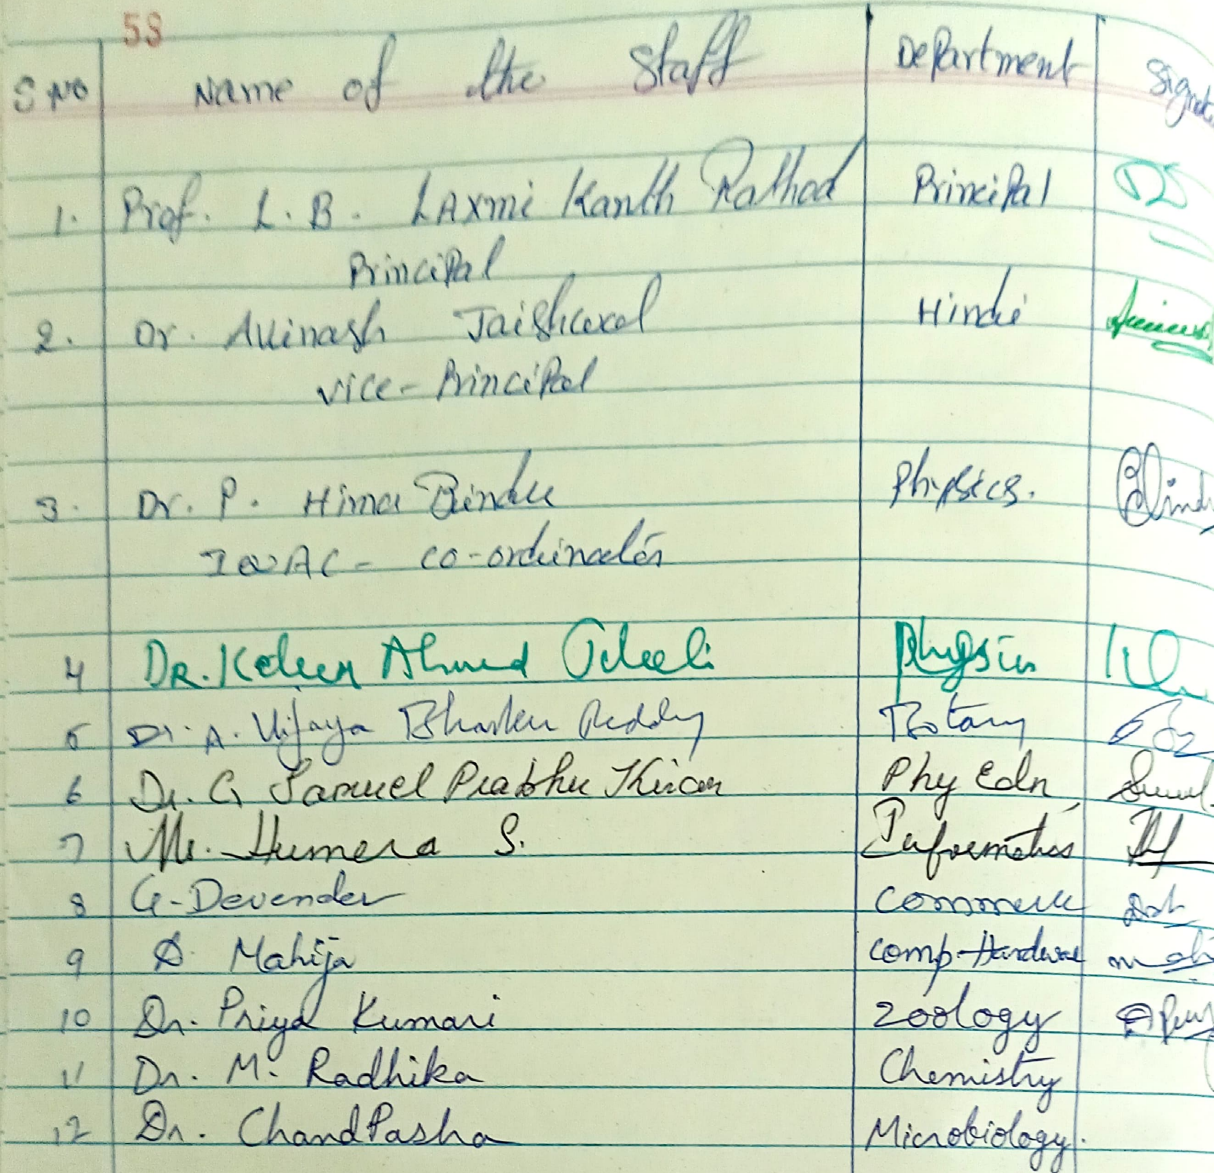 58
S No Name of the Staff Department Signat
1. Prof. L. B. Laxmi Kanth Rathod Principal
Principal
2. Dr. Avinash Jaishwal Hindi
Vice-Principal
3. Dr. P. Hima Bindu Physics.
IQAC- Co-ordinator
4 DR. Ahmed Physics
5 Dr. A. Vijaya Bhasker Reddy Botany
6 Dr. G Samuel Prabhu Kiran Phy Edn
7 Humera S. Informatics
8 G-Devender Commerce
9 Mahija Comp-Hardware
10 Dr. Priya Kumari Zoology
11 Dr. M. Radhika Chemistry
12 Dr. Chand Pasha Microbiology.